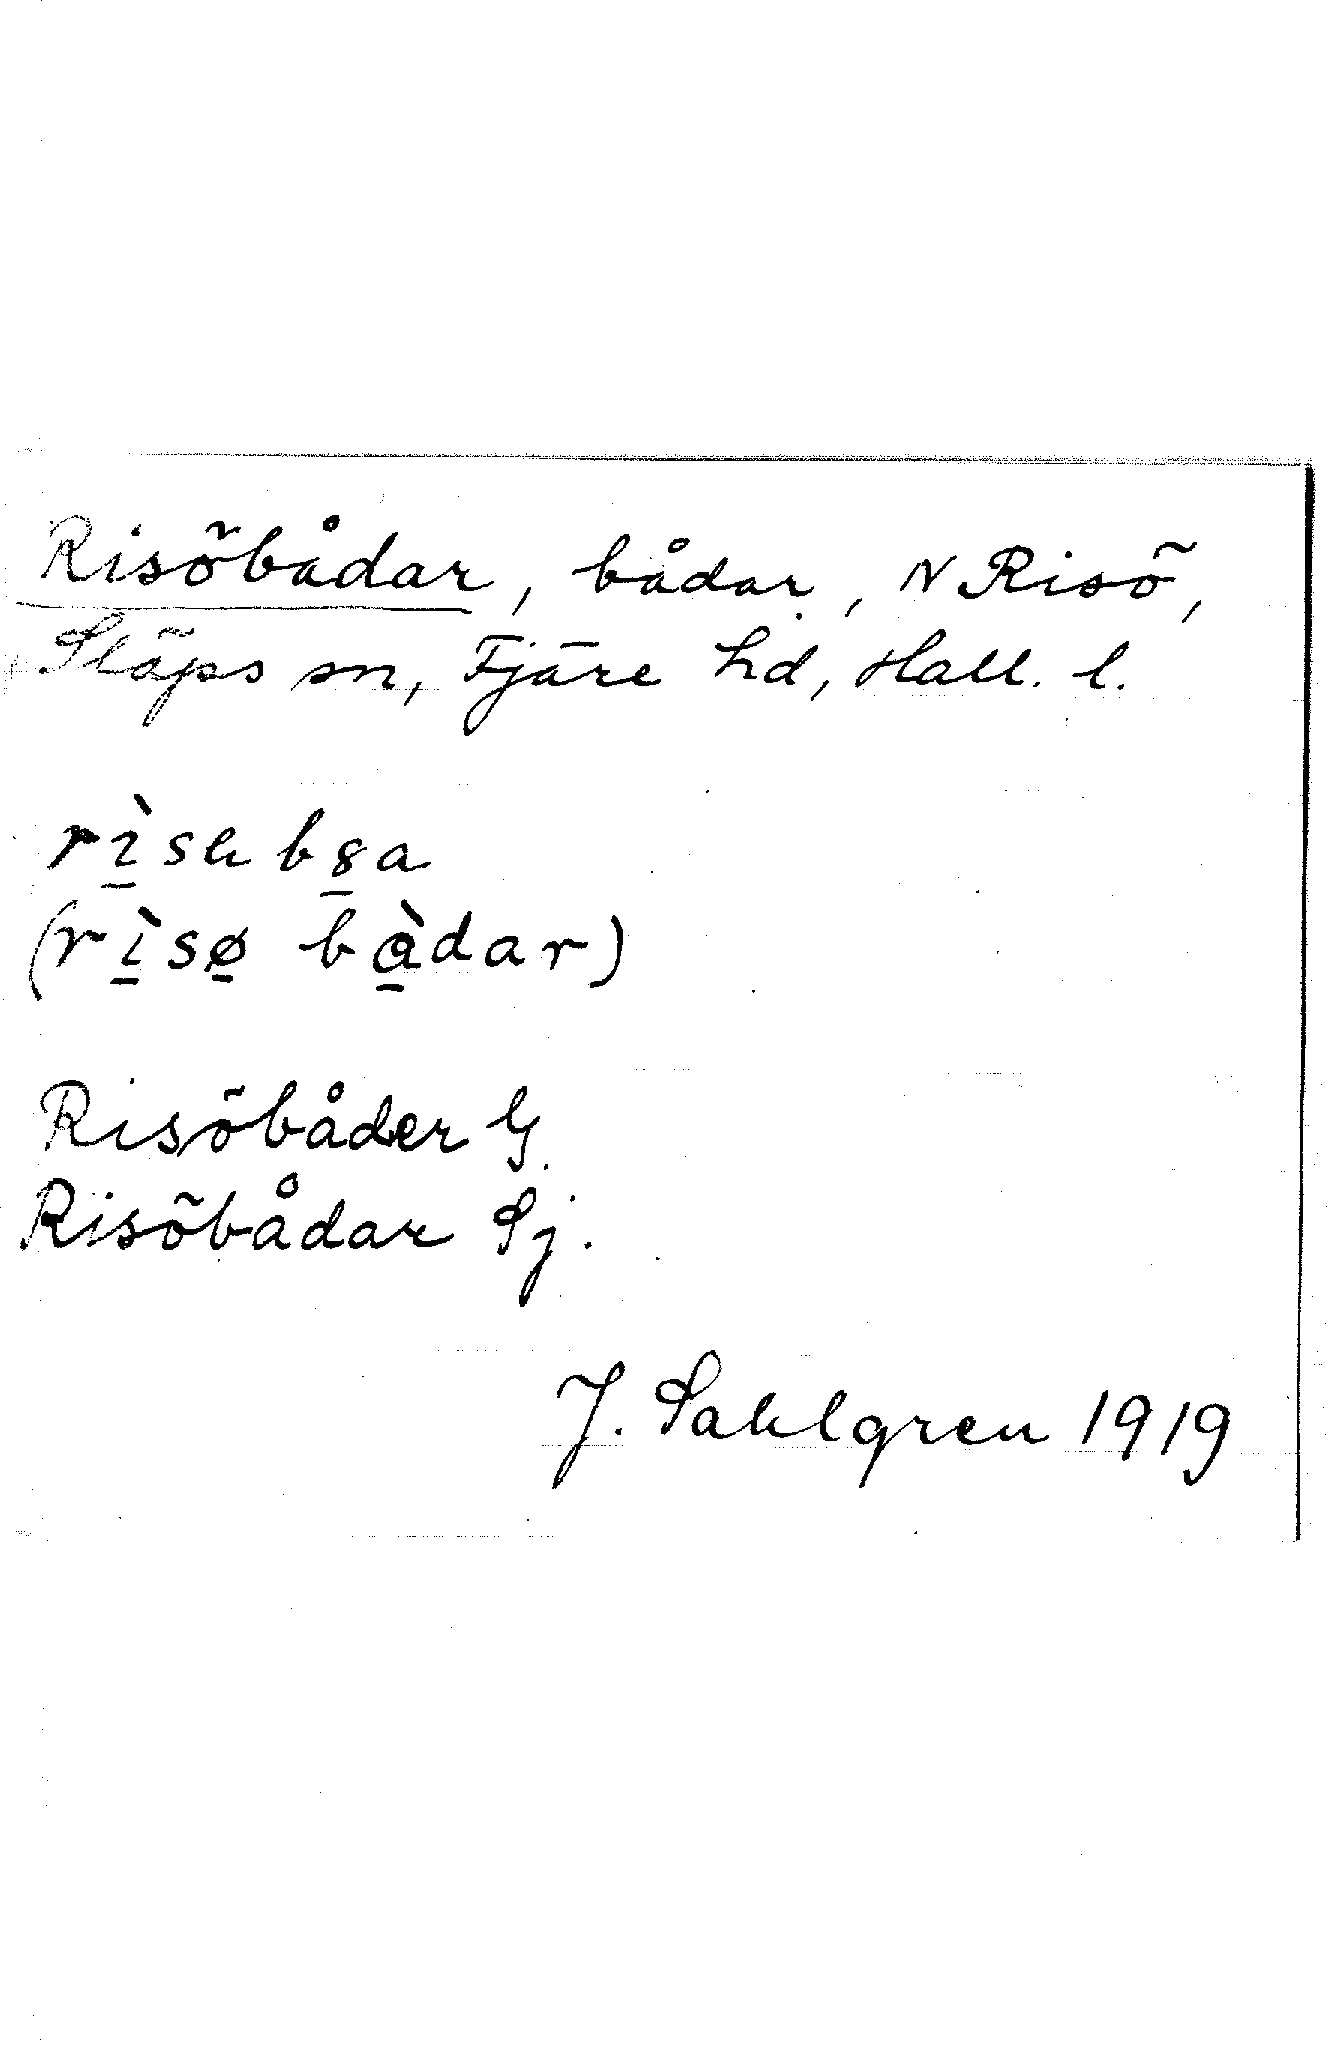 Risöbådar, bådar, N Risö,
Släps sn, Fjäre hd, Hall. l.
(rìsø bàdar)
Risöbåder G.
Risöbådar Sj.
J. Sahlgren 1919